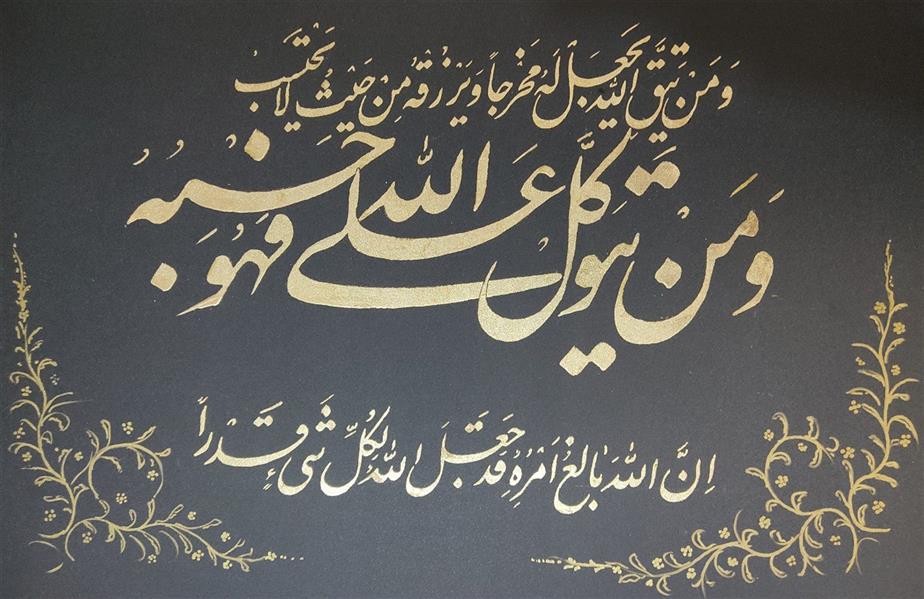 وَمَنْ يَتَّقِ اللهَ يَجْعَلْ لَهُ مَخْرَجاً وَيَرْزُقْهُ مِنْ حَيْثُ لَا يَحْتَسِبُ
وَمَنْ يَتَوَكَّلْ عَلَى اللهِ فَهُوَ حَسْبُهُ
اِنَّ اللهَ بَالِغُ اَمْرِهِ قَدْ جَعَلَ اللهُ لِكُلِّ شَیْءٍ قَدْراً